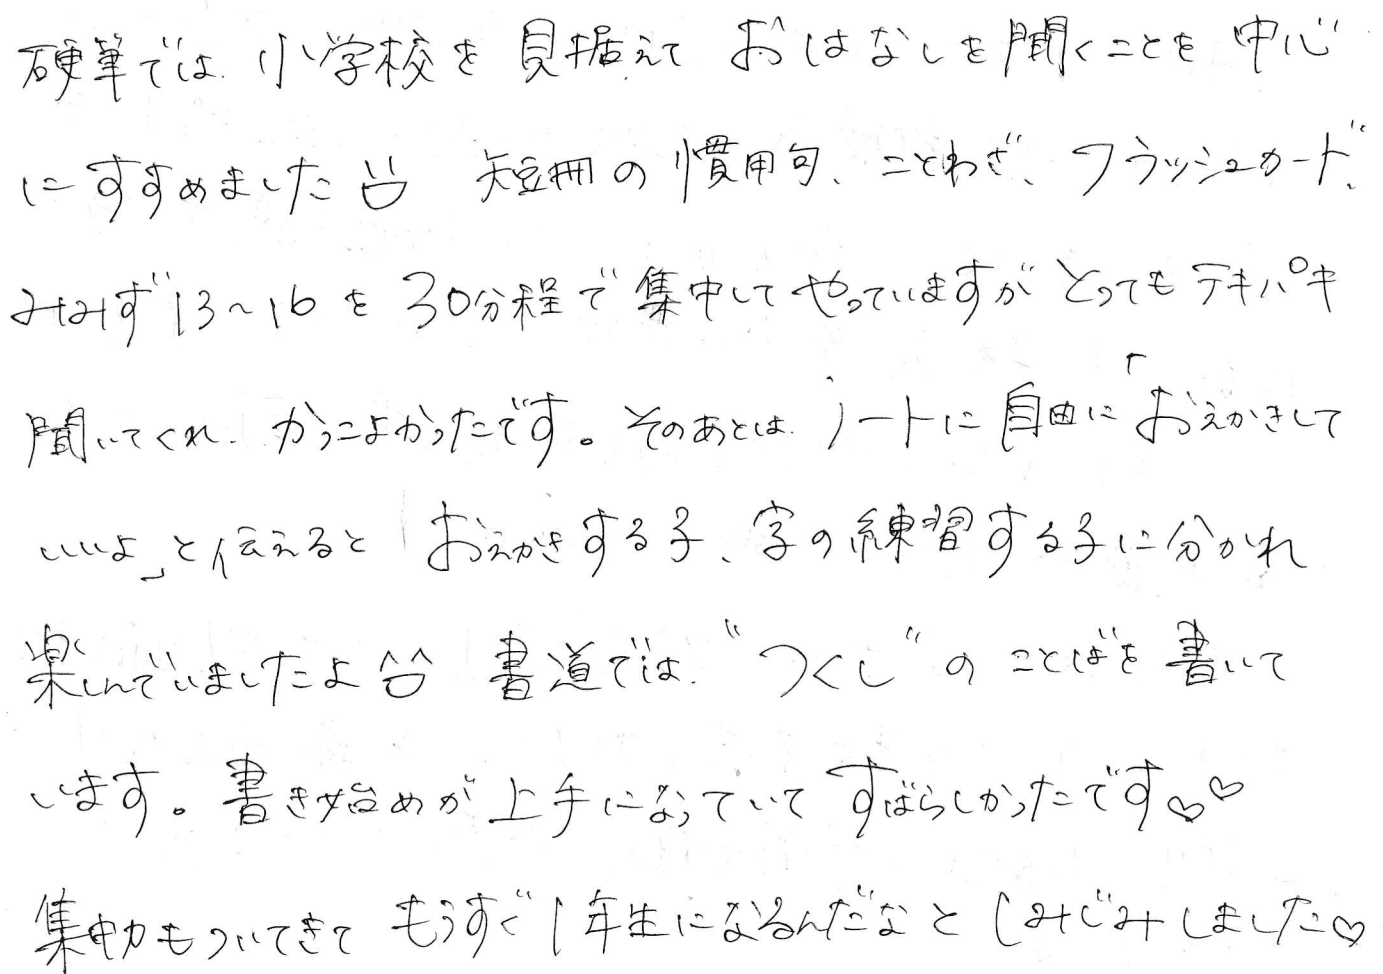 硬筆では、小学校を見据えて おはなしを聞くことを中心
にすすめました 短冊の慣用句、ことわざ、フラッシュカード、
みみず13〜16を30分程で集中してやっていますがとってもテキパキ
聞いてくれ、かっこよかったです。そのあとは、ノートに自由に「おえかきして
いいよ」と伝えると おえかきする子、字の練習する子に分かれ
楽しんでいましたよ 書道では、"つくし"の ことばを書いて
います。書き始めが上手になっていてすばらしかったです♡♡
集中力もついてきて もうすぐ1年生になるんだなと しみじみしました♡